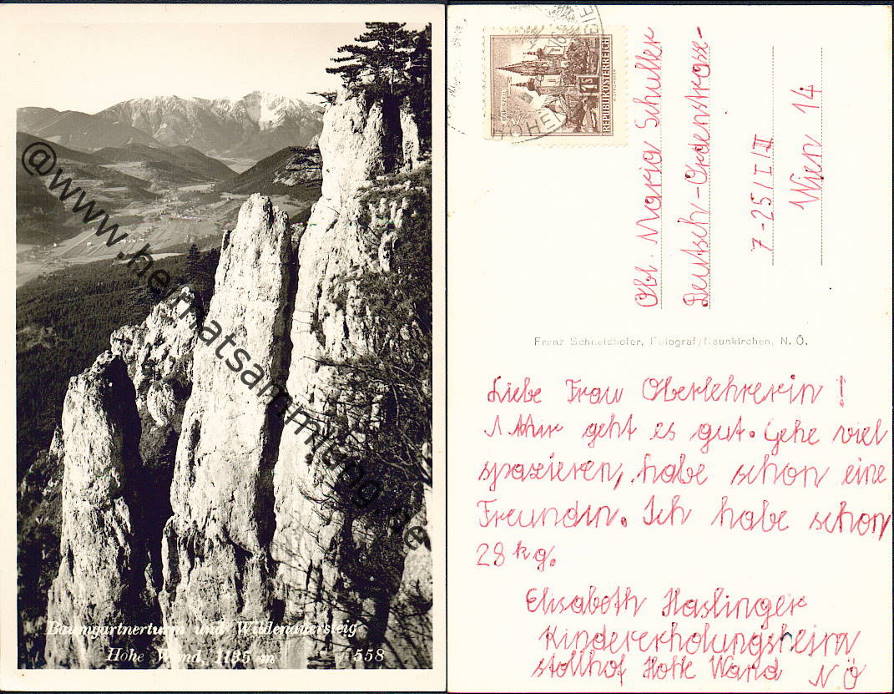 www.heimatsammlung.de
Baumgartnerturm und Wildenauersteig
Hohe Wand, 1135 m 558
REPUBLIK ÖSTERREICH
Obl. Maria Schuller
Deutsch-Ordenstrasse-
7-25/I/II
Wien 14
Franz Schnelzhofer, Fotograf, Neunkirchen, N. Ö.
Liebe Frau Oberlehrerin!
Mir geht es gut. Gehe viel
spazieren, habe schon eine
Freundin. Ich habe schon
28 kg.
Elisabeth Haslinger
Kindererholungsheim
Stollhof Hohe Wand NÖ